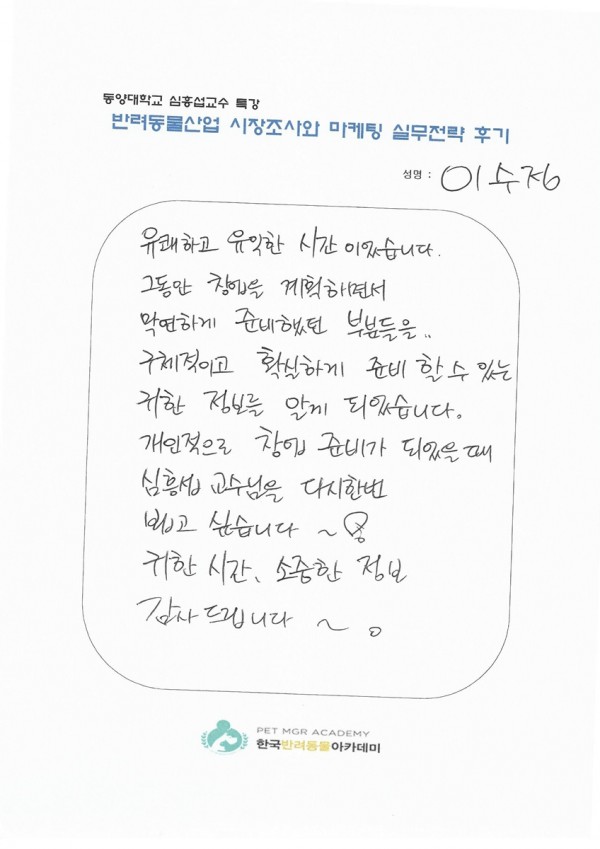 동양대학교 심흥섭교수 특강
반려동물산업 시장조사와 마케팅 실무전략 후기
성명 : 이수정
유쾌하고 유익한 시간이었습니다.
그동안 창업을 계획하면서
막연하게 준비했던 부분들을..
구체적이고 확실하게 준비 할 수 있는
귀한 정보를 알게 되었습니다.
개인적으로 창업 준비가 되었을 때
심흥섭 교수님을 다시한번
뵙고 싶습니다 ~
귀한 시간, 소중한 정보
감사드립니다 ~.
PET MGR ACADEMY
한국반려동물아카데미